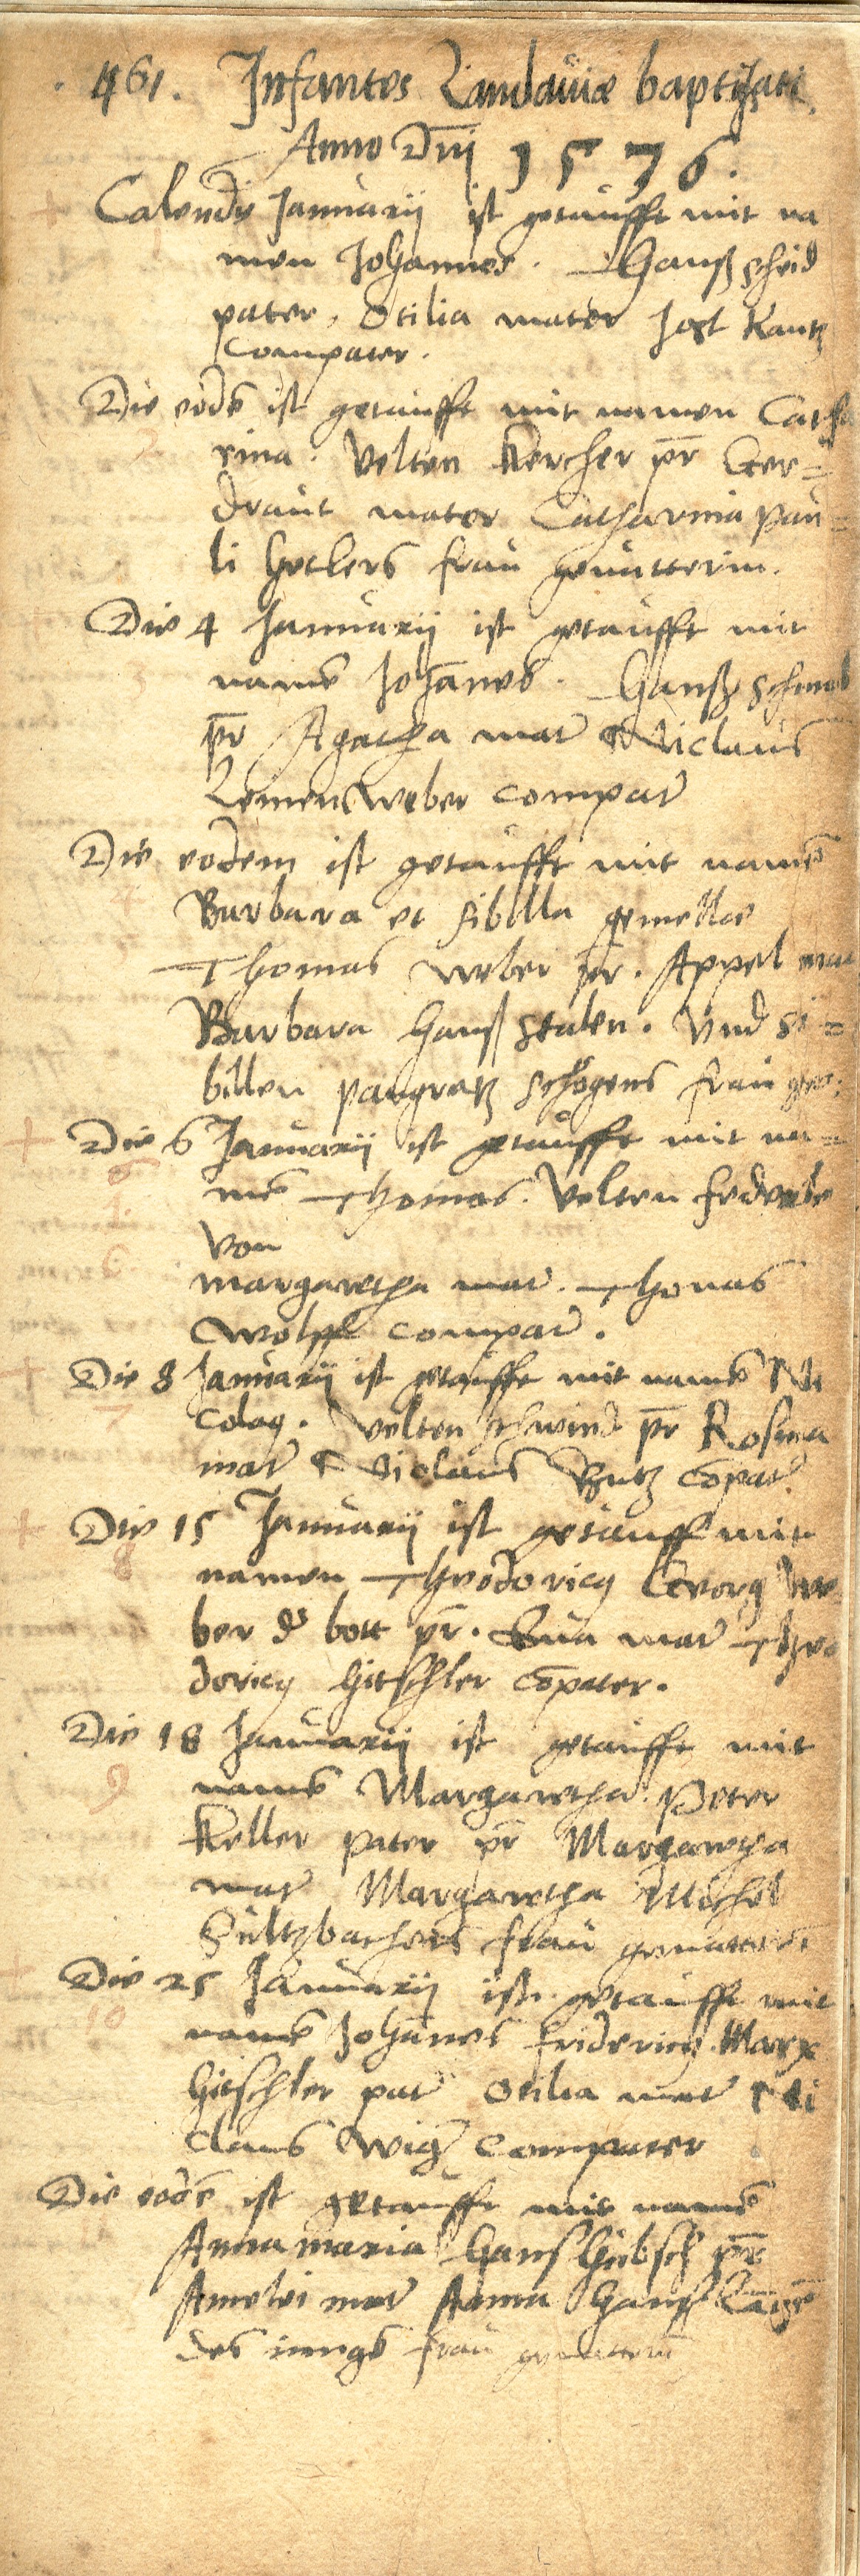 461. Infantes Landaviæ baptizati
Anno Dñi 1576.
Calendis Januarij ist getaufft mit na
men Johannes. Hanß scheid
pater, Otilia mater Jost Kantz
Compater.
Die eodē ist getaufft mit namen Catha
rina. Velten Kercher pr̄ Ger=
draut mater Catharina Pau=
li Hetlers frau gevatterin.
Die 4 Januarij ist getaufft mit
namē Johanes. Hanß
pr̄ Agatha mat̄ Niclaus
Lemenweber compat̄
Die eodem ist getaufft mit namē
Barbara et Sibilla gemellæ
Thomas weber pr̄. Appel mat
Barbara Hanß stalen. Und Si=
billen pangratz frau ge:
Die 6 Januarij ist getaufft mit na=
mē Thomas. Velten
von
margaretha mat̄. Thomas
Wolff compat̄.
Die 8 Januarij ist getaufft mit namē Ni
colaꝰ. Velten schwind pr̄ Rosina
mat̄ Niclaus Butz Cōpat̄
Die 15 Januarij ist getauff mit
namen Theodoricꝰ Georg We
ber dˢ bott pr̄. Eua mat̄ Theo
doricꝰ Hitschler Cōpater.
Die 18 Januarij ist getaufft mit
namē Margaretha Peter
Keller pater pr̄ Margaretha
mat̄ Margaretha Michel
Sultzbachers frau gevatterī
Die 25 Januarij ist getaufft mit
namē Johānes fridericꝰ Marx
Hitschler pat̄ Otilia mat̄ Ni
claus Compater
Die eodē ist getaufft mit namē
Anna maria Hans Hübsch pr̄
Amelei mat̄ Anna Hanß
des iungē frau gevatterī